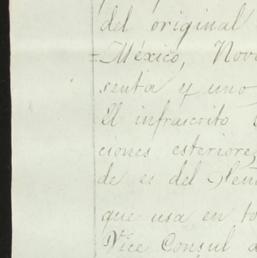 del original
=México, Nov
senta y uno
El infrascrito
ciones esteriore
de es del Señ
que usa en to
Vice Consul d